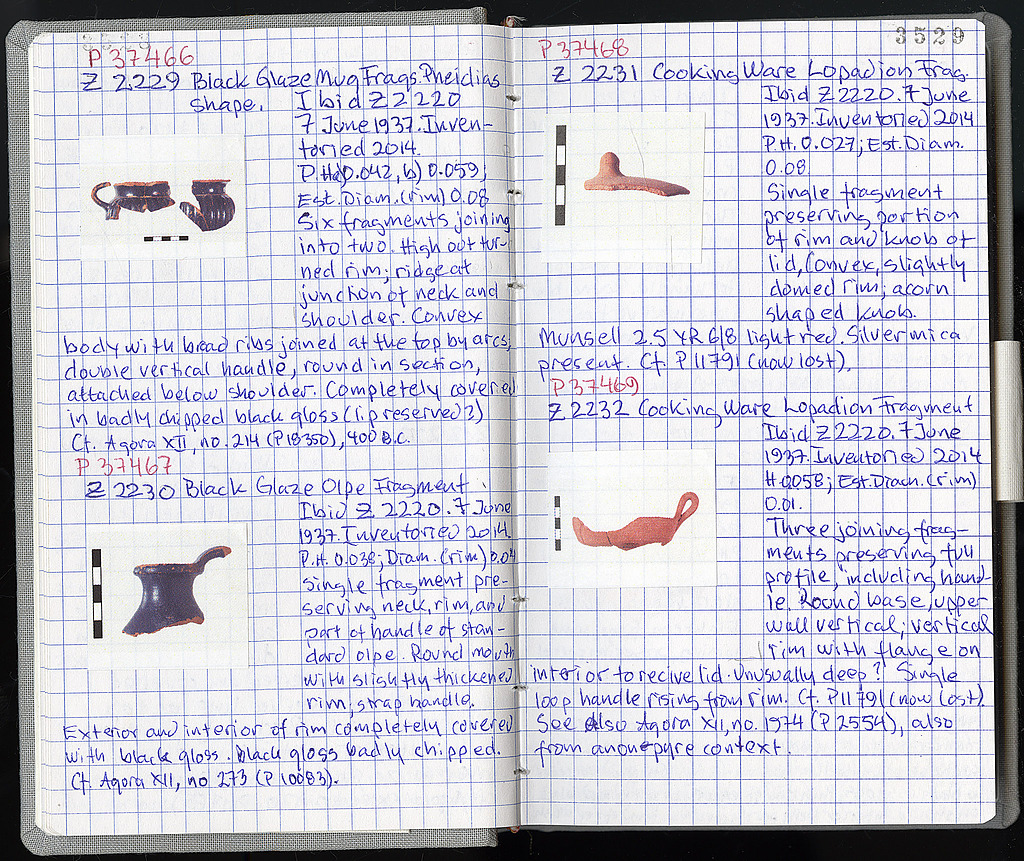 P 37466
Z 2229 Black Glaze Mug Frags. Pheidias
shape. Ibid Z 2220
7 June 1937. Inven-
toried 2014.
P.H. a) 0.042, b) 0.059;
Est. Diam. (rim) 0.08
Six fragments joining
into two. High out tur-
ned rim; ridge at
junction of neck and
shoulder. Convex
body with broad ribs joined at the top by arcs,
double vertical handle, round in section,
attached below shoulder. Completely covered
in badly chipped black gloss (lip reserved?)
Cf. Agora XII, no. 214 (P 18350), 400 B.C.
P 37467
Z 2230 Black Glaze Olpe Fragment.
Ibid Z 2220. 7 June
1937. Inventoried 2014.
P.H. 0.038; Diam. (rim) 0.04
Single fragment pre-
serving neck, rim, and
part of handle of stan-
dard olpe. Round mouth
with slightly thickened
rim, strap handle.
Exterior and interior of rim completely covered
with black gloss. black gloss badly chipped.
Cf. Agora XII, no 273 (P 10083).
3529
P 37468
Z 2231 Cooking Ware Lopadion Frag.
Ibid Z 2220. 7 June
1937. Inventoried 2014
P.H. 0.027; Est. Diam.
0.08.
Single fragment
preserving portion
of rim and knob of
lid, Convex, slightly
domed rim; acorn
shaped knob.
Munsell 2.5 YR 6/8 light red. Silver mica
present. Cf. P 11791 (now lost).
P 37469
Z 2232 Cooking Ware Lopadion Fragment
Ibid Z 2220. 7 June
1937. Inventoried 2014
H. 0058; Est. Diam. (rim)
0.01.
Three joining frag-
ments preserving full
profile, including hand-
le. Round base, upper
wall vertical; vertical
rim with flange on
interior to recive lid. Unusually deep? Single
loop handle rising from rim. Cf. P 11791 (now lost).
See also Agora XII, no. 1974 (P 2554), also
from anoue pyre context.